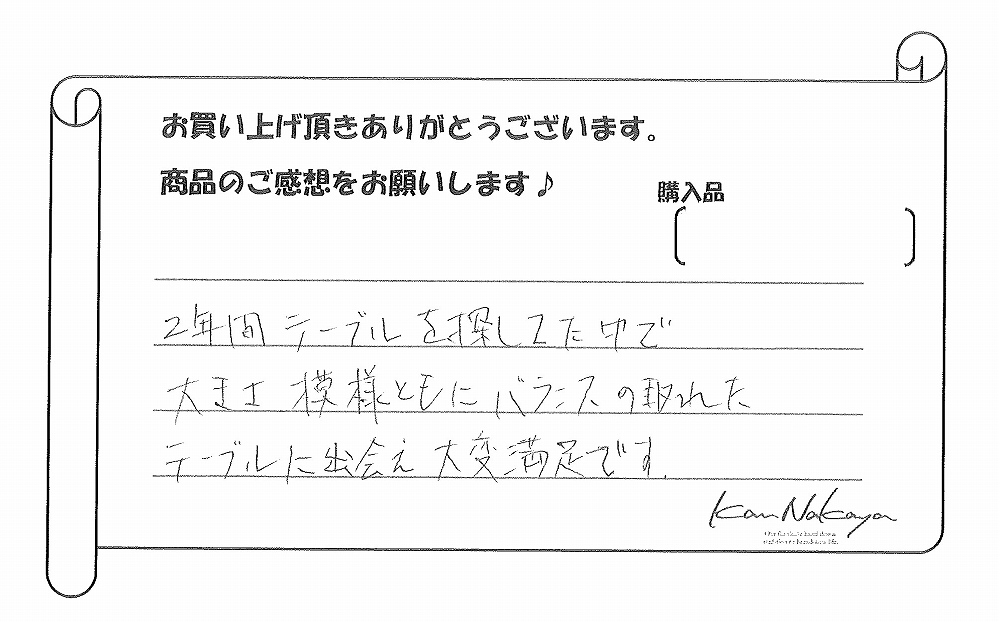 お買い上げ頂きありがとうございます。
商品のご感想をお願いします♪
購入品
2年間テーブルを探してた中で
大きさ模様ともにバランスの取れた
テーブルに出会え大変満足です.
Kan Nakaya